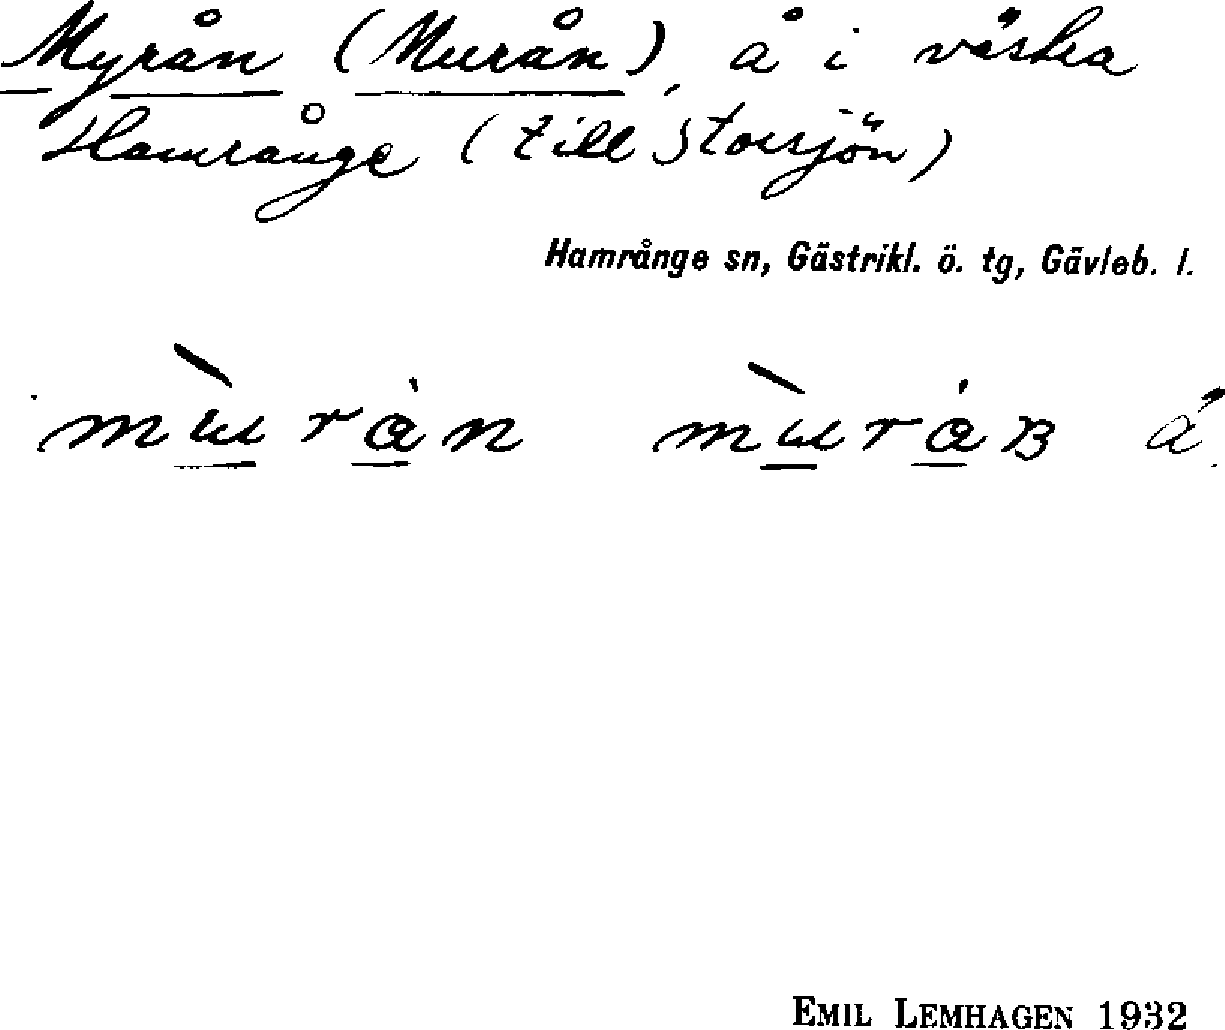 Myrån (Murån), å i västra
Hamrånge (till Storsjön)
Hamrånge sn, Gästrikl. ö. tg, Gävleb. l.
mùrån mùråɴ å.
EMIL LEMHAGEN 1932